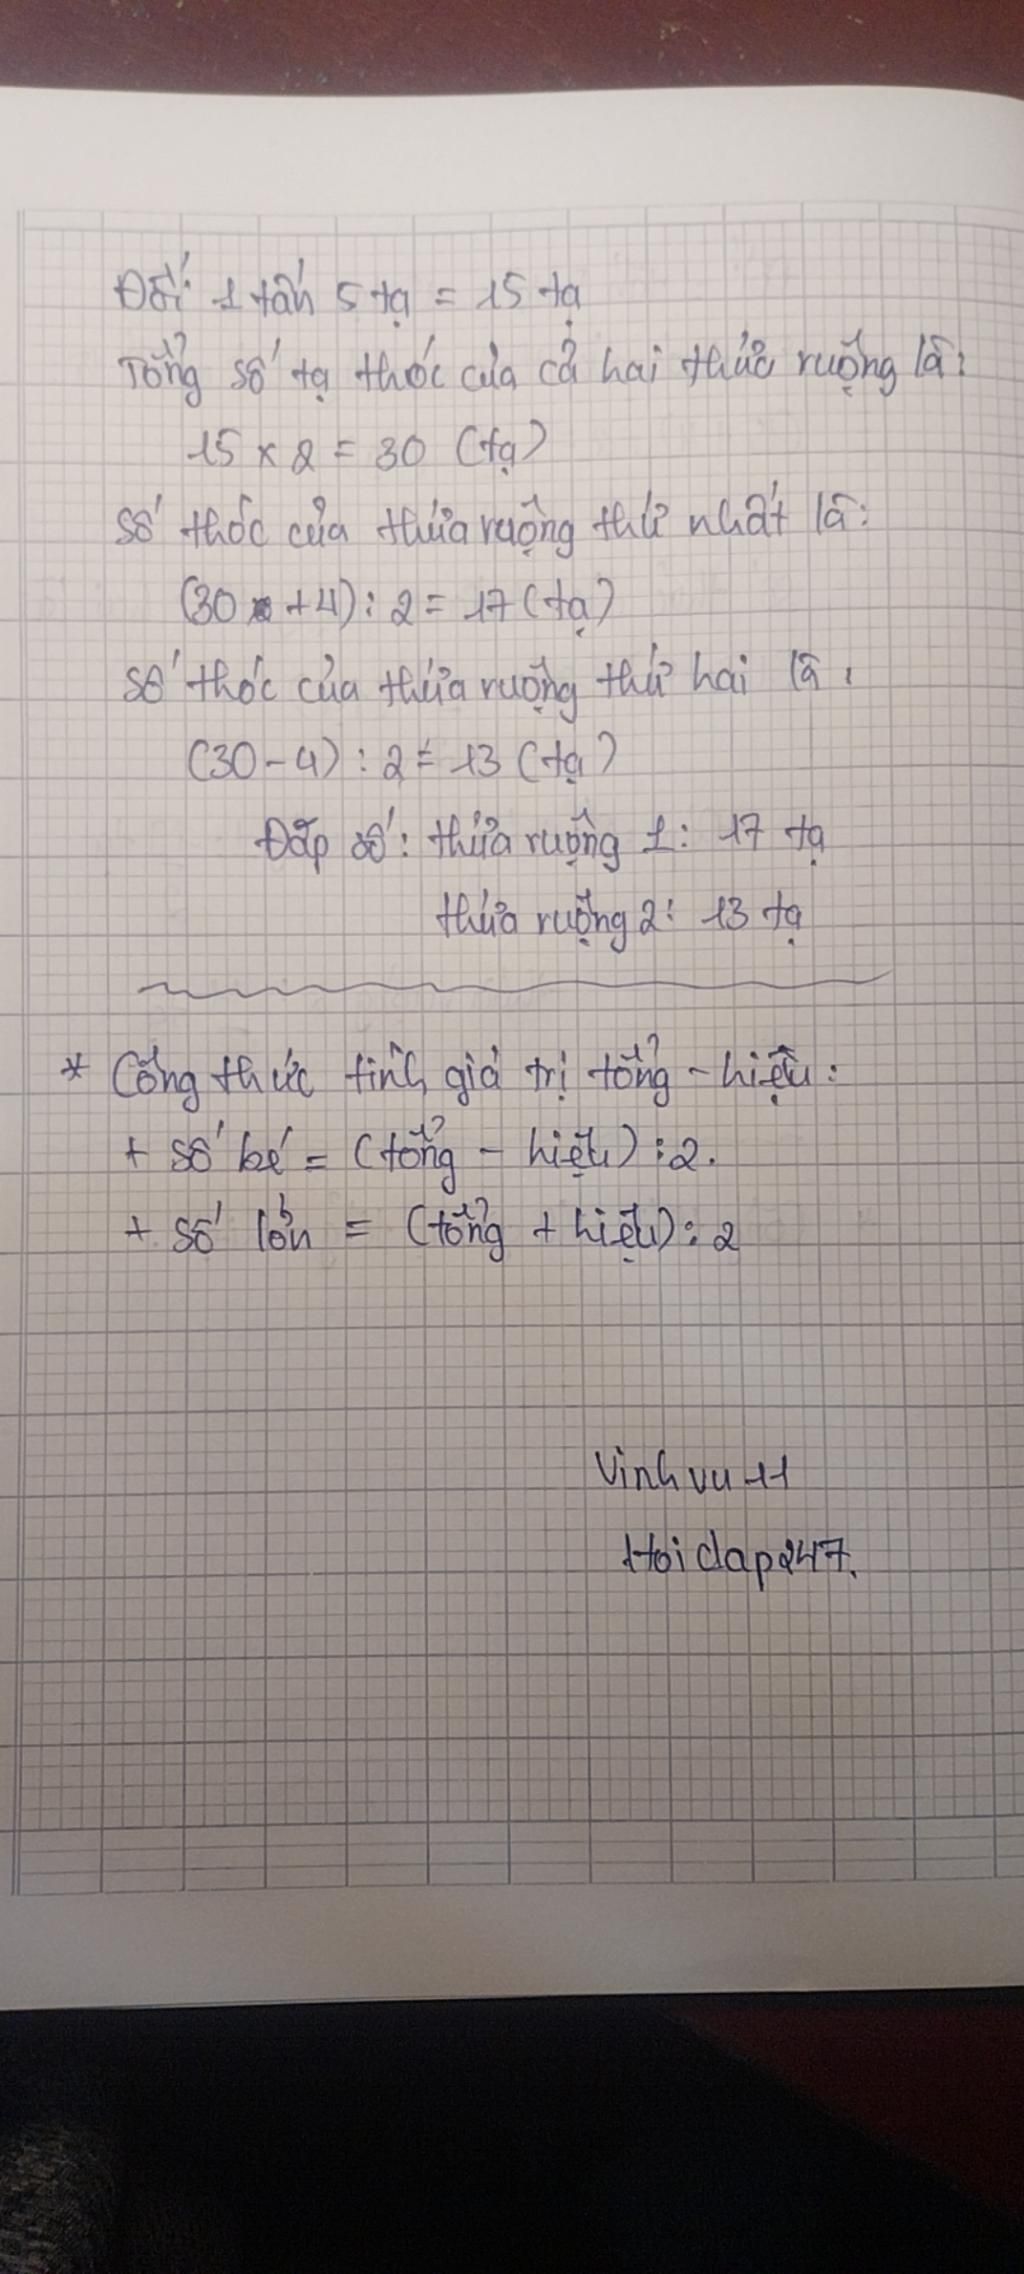 Đổi: 1 tấn 5 tạ = 15 tạ
Tổng số tạ thóc của cả hai thửa ruộng là:
15 x 2 = 30 (tạ)
Số thóc của thửa ruộng thứ nhất là:
(30 + 4) : 2 = 17 (tạ)
Số thóc của thửa ruộng thứ hai là:
(30 - 4) : 2 = 13 (tạ)
Đáp số: thửa ruộng 1: 17 tạ
thửa ruộng 2: 13 tạ
* Công thức tính giá trị tổng - hiệu:
+ số bé = (tổng - hiệu) : 2.
+ số lớn = (tổng + hiệu) : 2
Vinhvu11
Hoidap247.